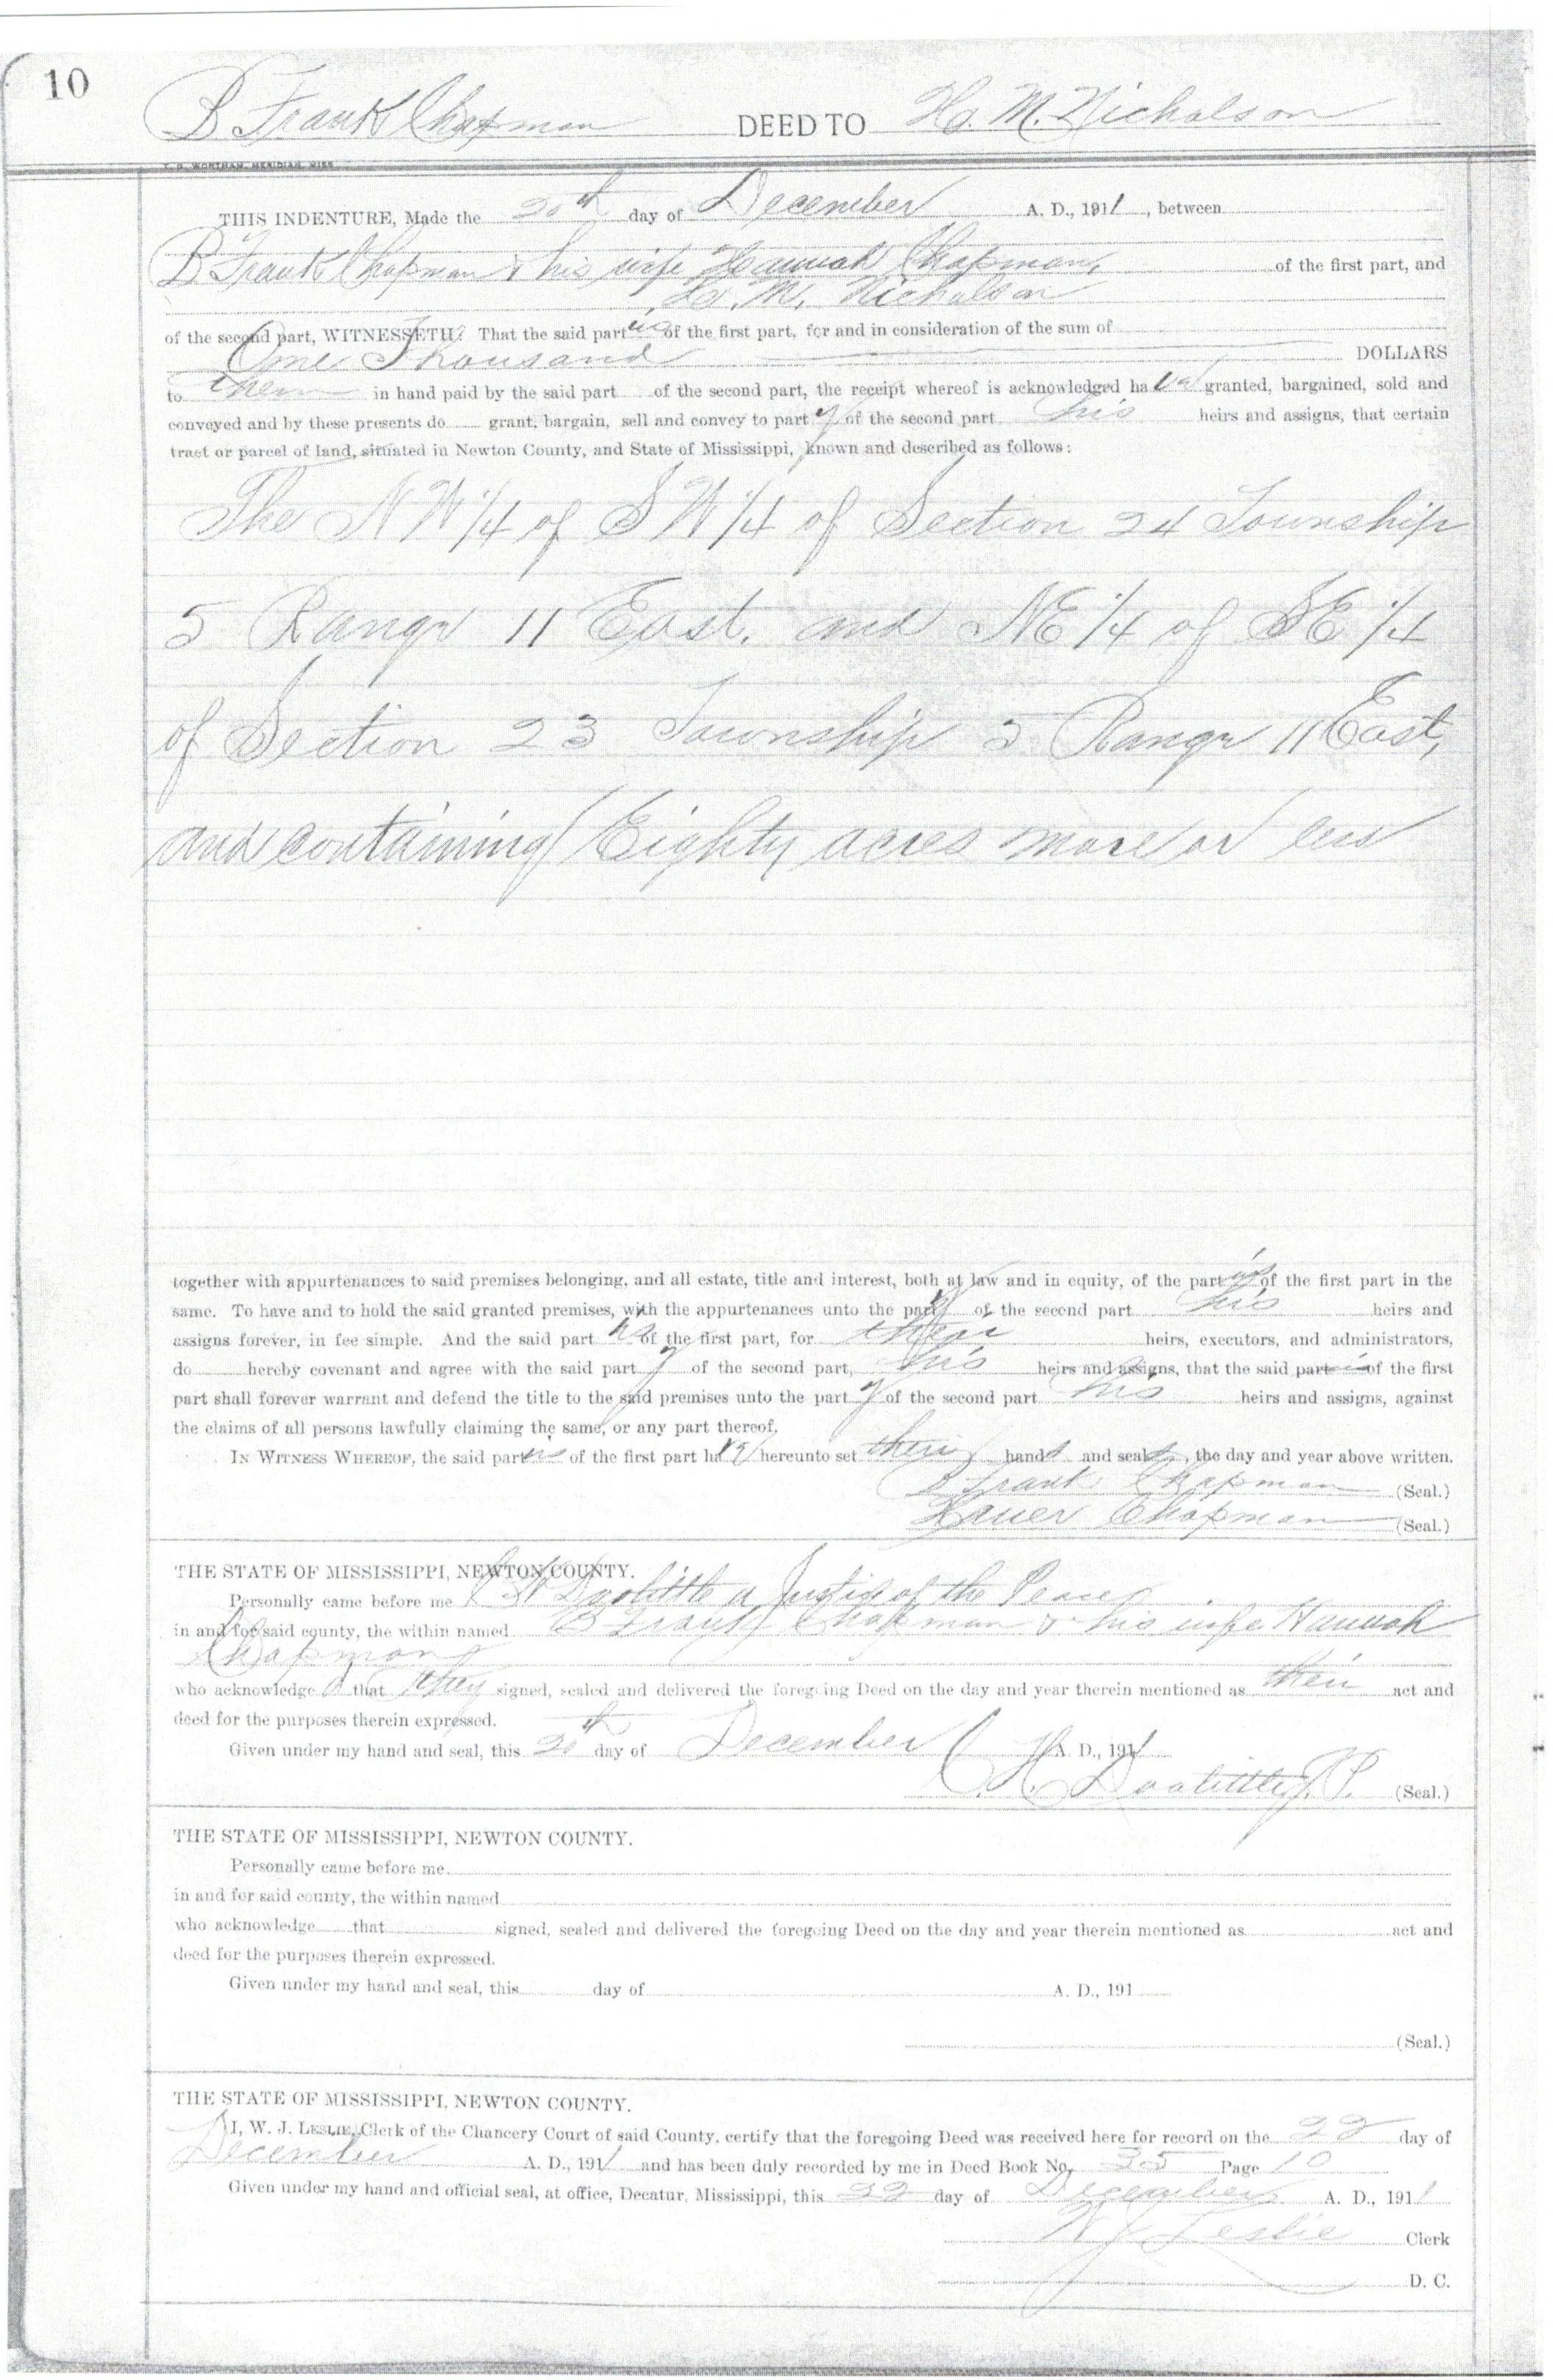 10
B Frank Chapman DEED TO H. M. Nicholson
T. G. WORTHAM, MERIDIAN, MISS
THIS INDENTURE, Made the 20th day of December A. D., 1911, between
B Frank Chapman & his wife Hannah Chapman, of the first part, and
H. M. Nicholson
of the second part, WITNESSETH: That the said parties of the first part, for and in consideration of the sum of
One Thousand DOLLARS
to them in hand paid by the said part of the second part, the receipt whereof is acknowledged have granted, bargained, sold and
conveyed and by these presents do grant, bargain, sell and convey to party of the second part his heirs and assigns, that certain
tract or parcel of land, situated in Newton County, and State of Mississippi, known and described as follows:
The NW 1/4 of SW 1/4 of Section 24 Township
5 Range 11 East. and NE 1/4 of SE 1/4
of Section 23 Township 5 Range 11 East,
and containing Eighty acres more or less
together with appurtenances to said premises belonging, and all estate, title and interest, both at law and in equity, of the parties of the first part in the
same. To have and to hold the said granted premises, with the appurtenances unto the party of the second part his heirs and
assigns forever, in fee simple. And the said part of the first part, for their heirs, executors, and administrators,
do hereby covenant and agree with the said party of the second part, his heirs and assigns, that the said part of the first
part shall forever warrant and defend the title to the said premises unto the party of the second part his heirs and assigns, against
the claims of all persons lawfully claiming the same, or any part thereof.
IN WITNESS WHEREOF, the said parties of the first part have hereunto set their hands and seals, the day and year above written.
B Frank Chapman (Seal.)
Chapman (Seal.)
THE STATE OF MISSISSIPPI, NEWTON COUNTY.
Personally came before me C H Doolittle a Justice of the Peace
in and for said county, the within named B Frank Chapman & his wife Hannah
Chapman
who acknowledged that they signed, sealed and delivered the foregoing Deed on the day and year therein mentioned as their act and
deed for the purposes therein expressed.
Given under my hand and seal, this 20th day of December A. D., 1911
C. H. Doolittle J. P. (Seal.)
THE STATE OF MISSISSIPPI, NEWTON COUNTY.
Personally came before me
in and for said county, the within named
who acknowledge that signed, sealed and delivered the foregoing Deed on the day and year therein mentioned as act and
deed for the purposes therein expressed.
Given under my hand and seal, this day of A. D., 191
(Seal.)
THE STATE OF MISSISSIPPI, NEWTON COUNTY.
I, W. J. LESLIE, Clerk of the Chancery Court of said County, certify that the foregoing Deed was received here for record on the 22 day of
December A. D., 1911 and has been duly recorded by me in Deed Book No. 35 Page 10
Given under my hand and official seal, at office, Decatur, Mississippi, this 22 day of December A. D., 1911
W J Leslie Clerk
D. C.